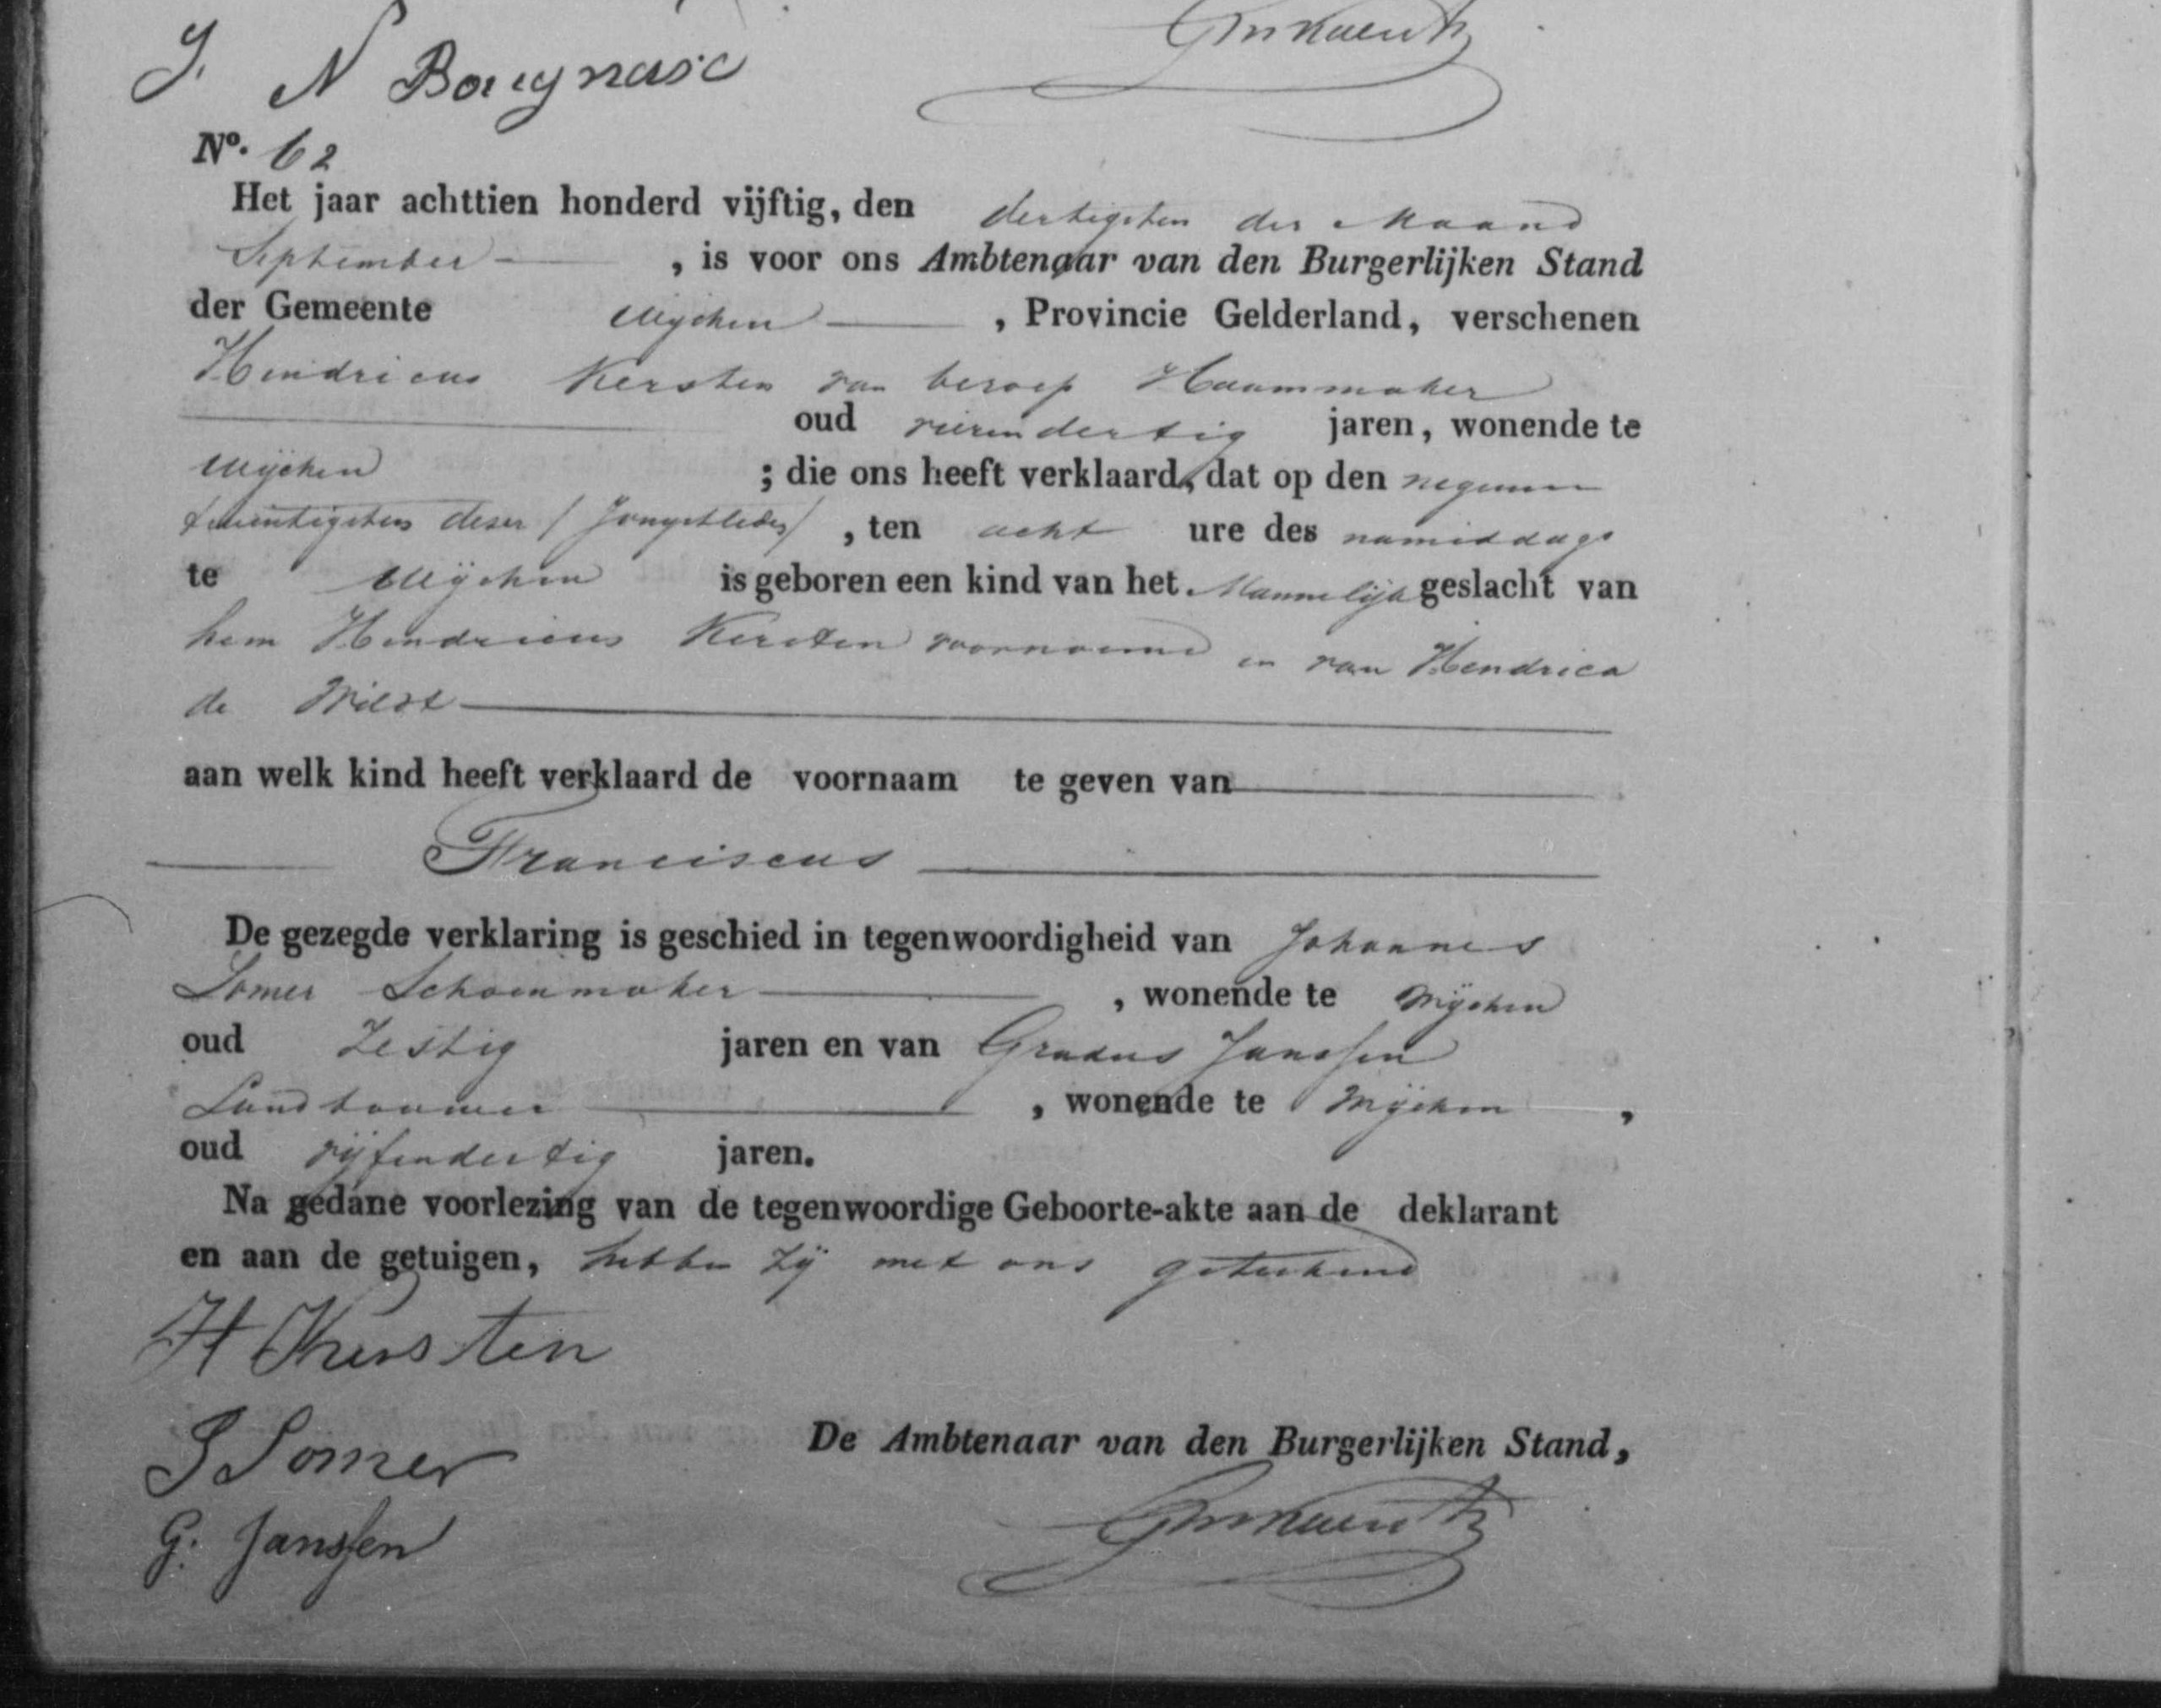 J. N
No. 62
Het jaar achttien honderd vijftig, den dertigsten der Maand
September , is voor ons Ambtenaar van den Burgerlijken Stand
der Gemeente Wijchen , Provincie Gelderland, verschenen
Hendricus Kersten van beroep Haammaker
oud vierendertig jaren, wonende te
Wijchen ; die ons heeft verklaard, dat op den negenen
twentigsten deser / Jongstleden / , ten acht ure des namiddags
te Wijchen is geboren een kind van het Mannelijk geslacht van
hem Hendricus Kersten voornoemd en van Hendrica
de Wildt
aan welk kind heeft verklaard de voornaam te geven van
Franciscus
De gezegde verklaring is geschied in tegenwoordigheid van Johannes
Somer Schoenmaker , wonende te Wijchen
oud Zestig jaren en van Gradus Janssen
Landbouwer , wonende te Wijchen ,
oud vijfendertig jaren.
Na gedane voorlezing van de tegenwoordige Geboorte-akte aan de deklarant
en aan de getuigen, hebben zij met ons geteekend
H Kersten
J Somer
De Ambtenaar van den Burgerlijken Stand,
G. Janssen